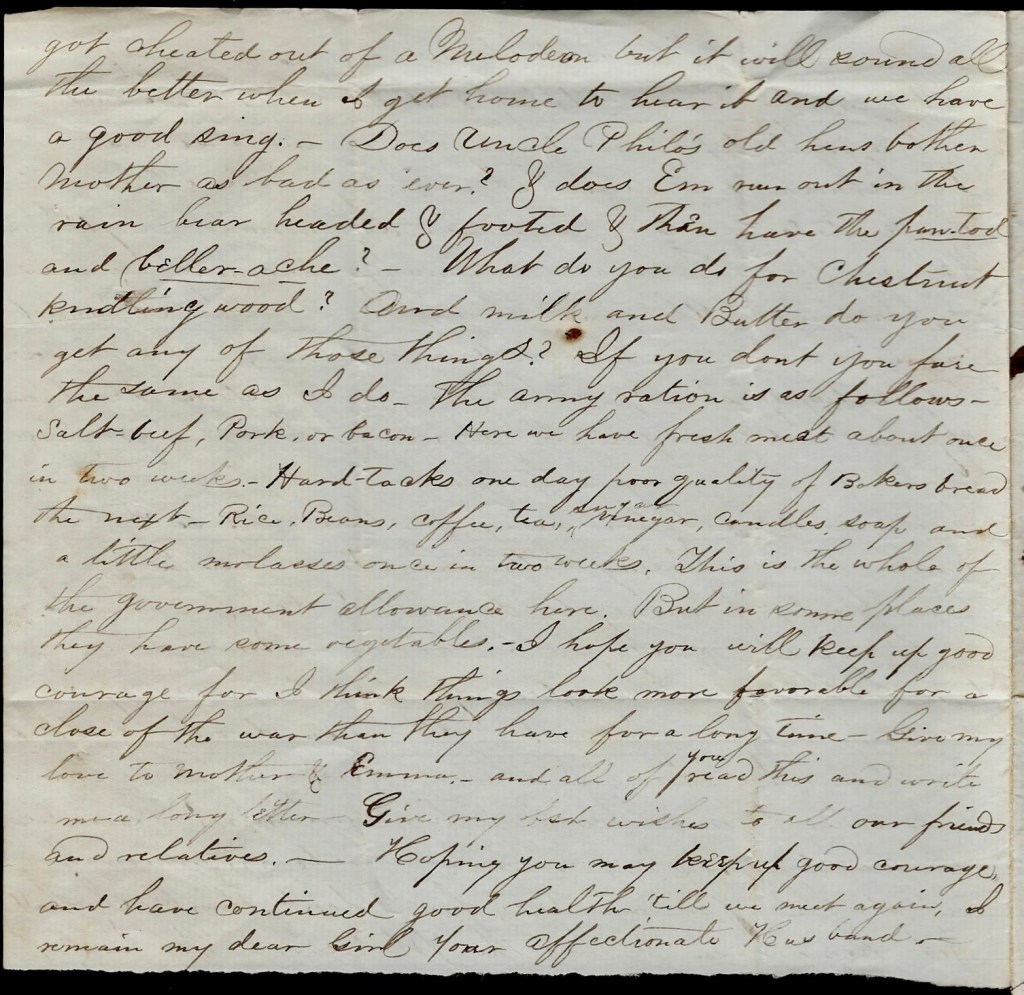 got cheated out of a Melodeon but it will sound all
the better when I get home to hear it and we have
a good sing. – Does Uncle Philo's old hens bother
Mother as bad as ever? & does Em run out in the
rain bear headed & footed & than have the
and beller-ache? – What do you do for Chestnut
kindling wood? And milk and Butter do you
get any of those things? If you dont you fare
the same as I do – The army ration is as follows –
Salt-beef, Pork, or bacon – Here we have fresh meat about once
in two weeks. – Hard-tacks one day poor quality of Bakers bread
the next – Rice, Beans, coffee, tea, sugar vinegar, candles, soap and
a little molasses once in two weeks. This is the whole of
the government allowance here. But in some places
they have some vegetables. – I hope you will keep up good
courage for I think things look more favorable for a
close of the war than they have for a long time – Give my
love to Mother & Emma – and all of you read this and write
me a long letter – Give my best wishes to all our friends
and relatives. — Hoping you may keep up good courage,
and have continued good health 'till we meet again, I
remain my dear Girl Your affectionate Husband –